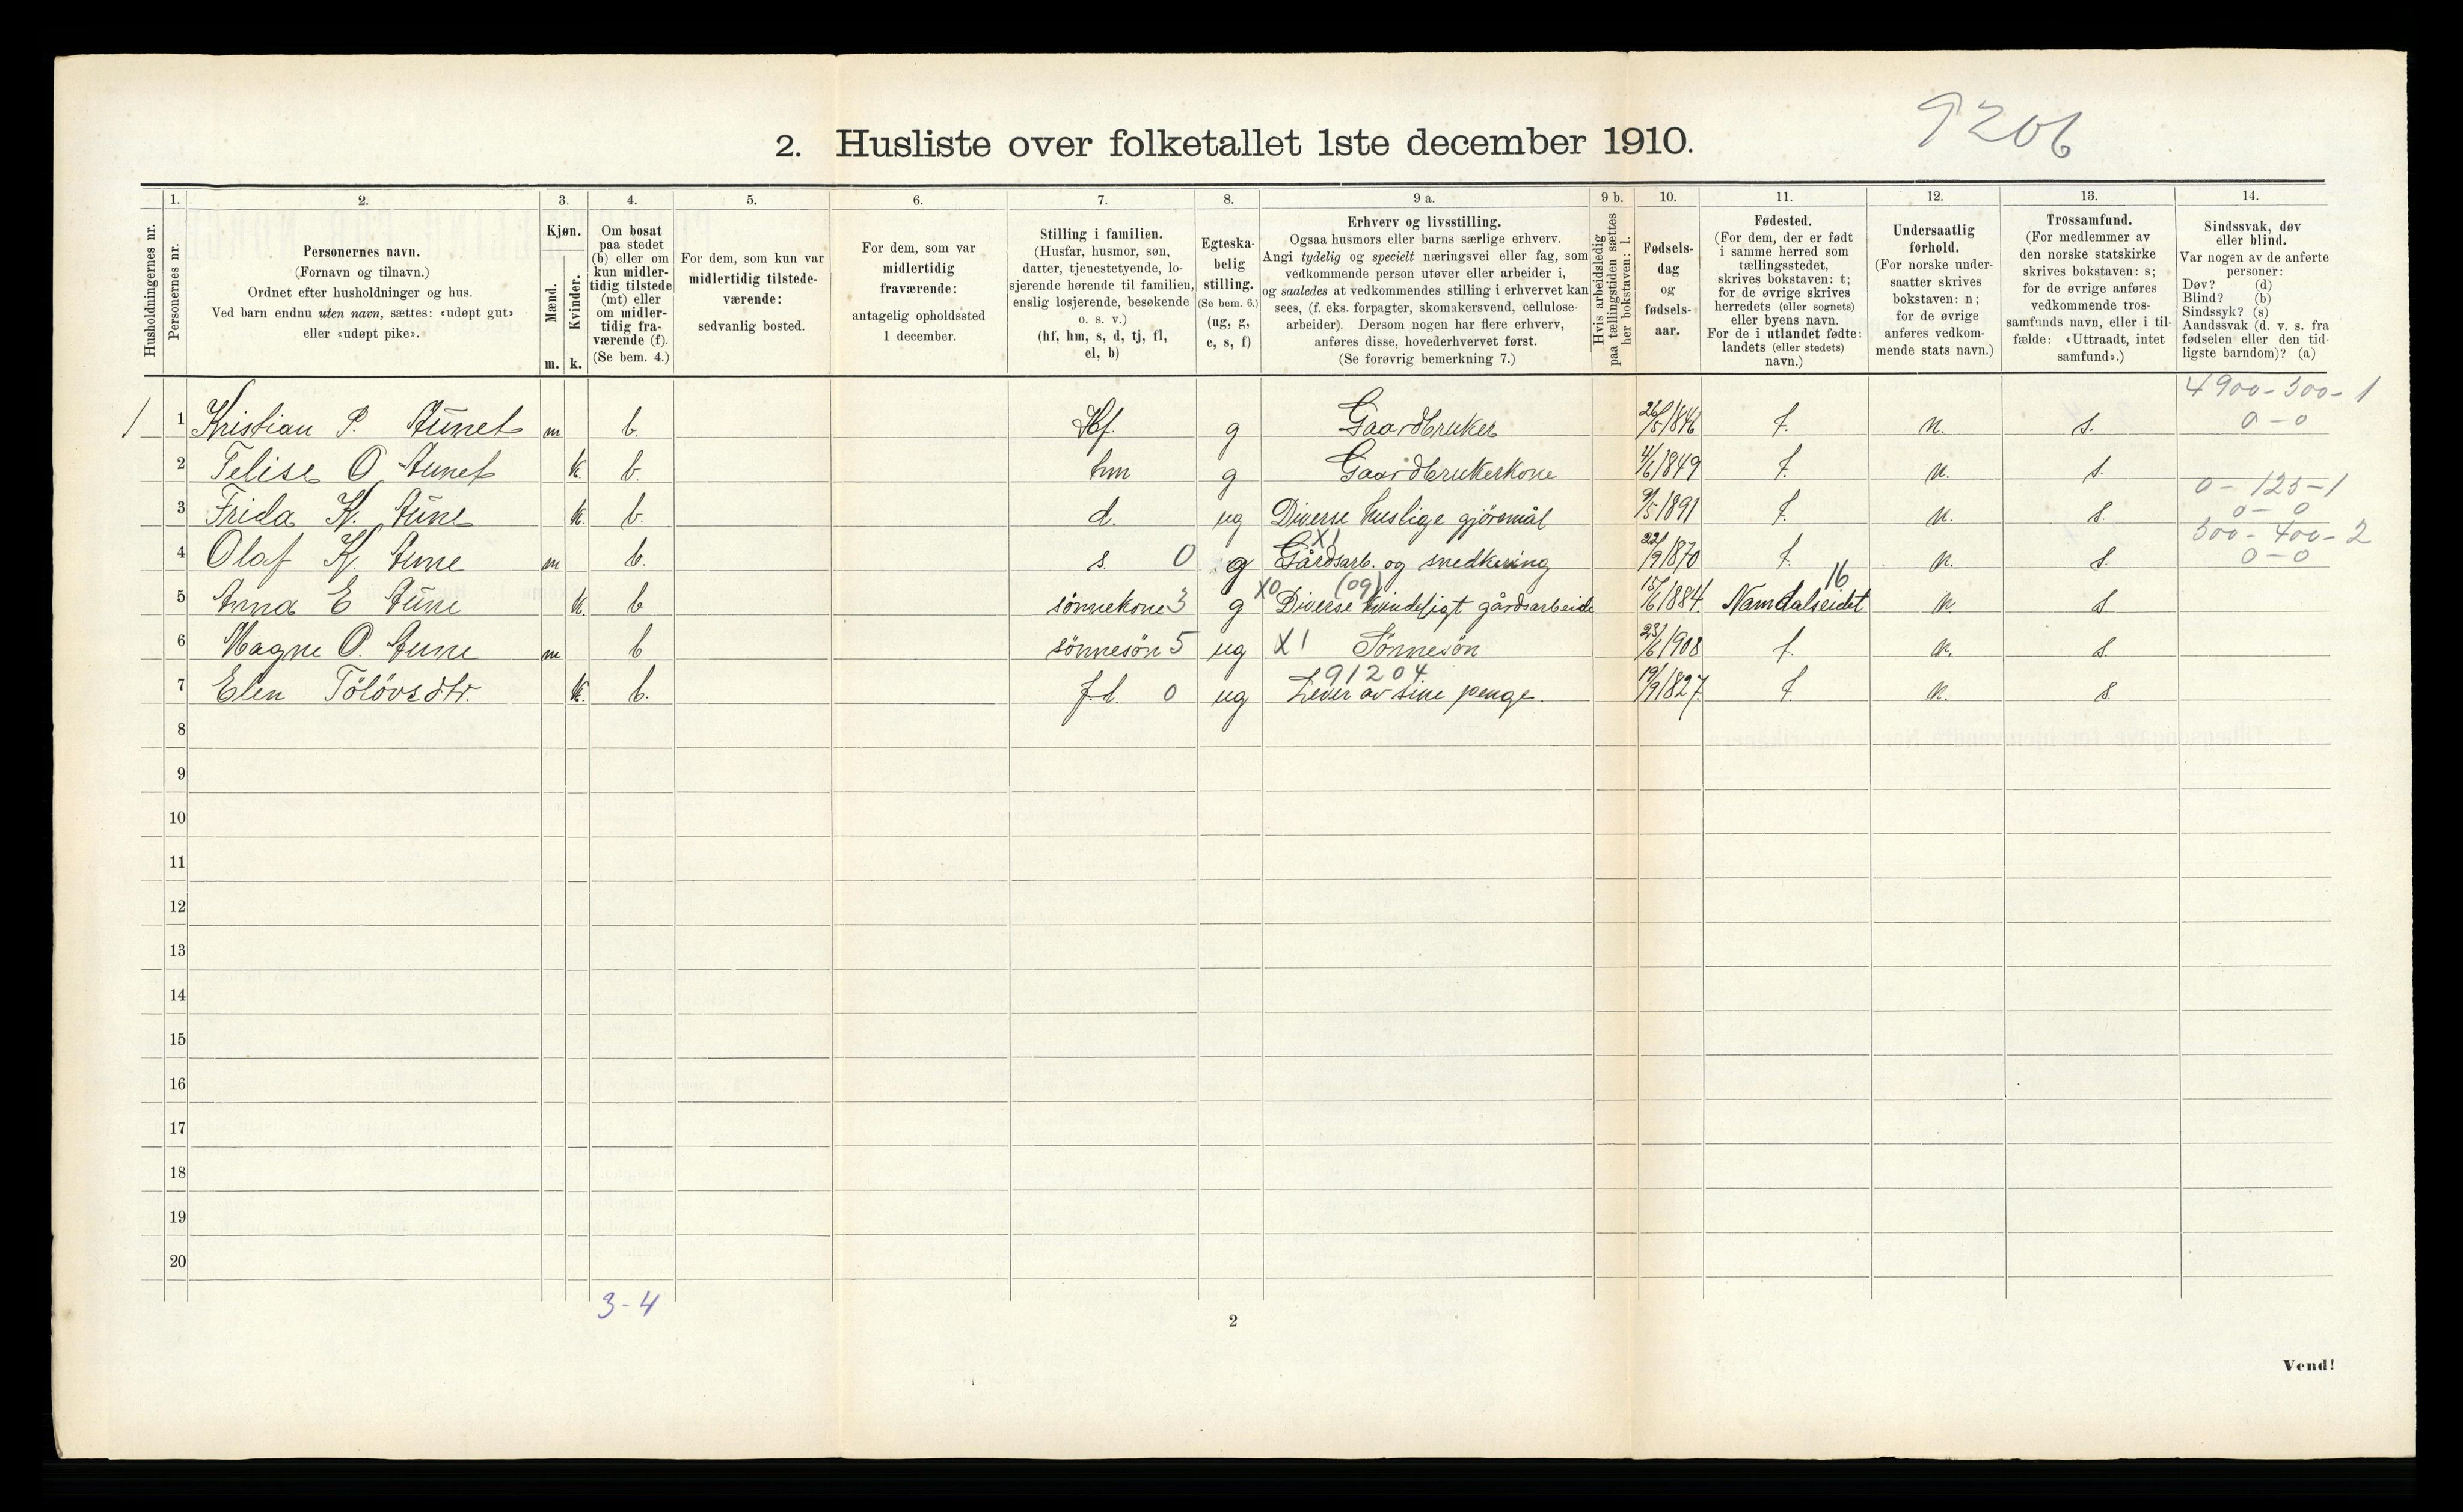 9206
2. Husliste over folketallet 1ste december 1910.
Husholdningernes nr.
1. Personernes nr.
2. Personernes navn. (Fornavn og tilnavn.) Ordnet efter husholdninger og hus. Ved barn endnu uten navn, sættes: «udøpt gut» eller «udøpt pike».
3. Kjøn. Mænd. m. Kvinder. k.
4. Om bosat paa stedet (b) eller om kun midlertidig tilstede (mt) eller om midlertidig fraværende (f). (Se bem. 4.)
5. For dem, som kun var midlertidig tilstedeværende: sedvanlig bosted.
6. For dem, som var midlertidig fraværende: antagelig opholdssted 1 december.
7. Stilling i familien. (Husfar, husmor, søn, datter, tjenestetyende, losjerende hørende til familien, enslig losjerende, besøkende o. s. v.) (hf, hm, s, d, tj, fl, el, b)
8. Egteskabelig stilling. (Se bem. 6.) (ug, g, e, s, f)
9 a. Erhverv og livsstilling. Ogsaa husmors eller barns særlige erhverv. Angi tydelig og specielt næringsvei eller fag, som vedkommende person utøver eller arbeider i, og saaledes at vedkommendes stilling i erhvervet kan sees, (f. eks. forpagter, skomakersvend, cellulosearbeider). Dersom nogen har flere erhverv, anføres disse, hovederhvervet først. (Se forøvrig bemerkning 7.)
9 b. Hvis arbeidsledig paa tællingstiden sættes her bokstaven: l.
10. Fødselsdag og fødselsaar.
11. Fødested. (For dem, der er født i samme herred som tællingsstedet, skrives bokstaven: t; for de øvrige skrives herredets (eller sognets) eller byens navn. For de i utlandet fødte: landets (eller stedets) navn.)
12. Undersaatlig forhold. (For norske undersaatter skrives bokstaven: n; for de øvrige anføres vedkommende stats navn.)
13. Trossamfund. (For medlemmer av den norske statskirke skrives bokstaven: s; for de øvrige anføres vedkommende trossamfunds navn, eller i tilfælde: «Uttraadt, intet samfund».)
14. Sindssvak, døv eller blind. Var nogen av de anførte personer: Døv? (d) Blind? (b) Sindssyk? (s) Aandssvak (d. v. s. fra fødselen eller den tidligste barndom)? (a)
4900-300-1
1 1 Kristian P. Aunet m b. Hf. g Gaardbruker 26/5 1846 t. n. s. 0-0
2 Felise O Aunet k. b. hm g Gaardbrukerkone 4/6 1849 t. n. s.
0-125-1
3 Frida K. Aune k. b. d. ug Diverse huslige gjöremål 9/5 1891 t. n. s. 0-0
X1 300-400-2
4 Olaf K. Aune m b. s. 0 g Gårdsarb. og snedkering 22/9 1870 t. n. s. 0-0
X0 (09) 16
5 Anna E Aune k. b sönnekone 3 g Diverse kvindeligt gårdsarbeide 15/6 1884. Namdalseidet n. s.
6 Magne O. Aune m b sönnesön 5 ug X1 Sönnesön 23/6 1908 t. n. s.
91204.
7 Elen Tölövsdtr. k. b. fl. 0 ug Lever av sine penge. 19/9 1827. t. n. s.
8
9
10
11
12
13
14
15
16
17
18
19
20
3-4
2
Vend!